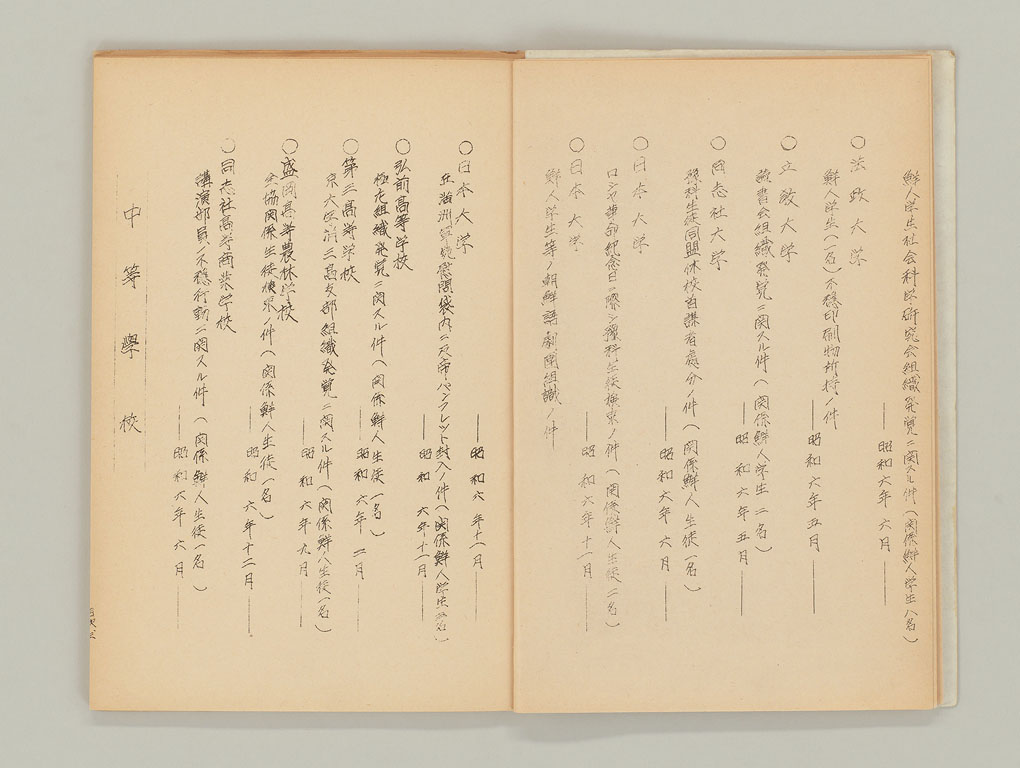 鮮人学生社会科学研究会組織発覚ニ関スル件(関係鮮人学生八名)
――昭和六年六月――
○法政大学
鮮人学生(一名)不穏印刷物所持ノ件
――昭和六年五月――
○立教大学
読書会組織発覚ニ関スル件(関係鮮人学生二名)
――昭和六年五月――
○同志社大学
予科生徒同盟休校首謀者処分ノ件(関係鮮人生徒一名)
――昭和六年六月――
○日本大学
ロシヤ革命紀念日ニ際シ予科生徒検束ノ件(関係鮮人生徒二名)
――昭和六年十一月――
○日本大学
鮮人学生等ノ朝鮮語劇団組織ノ件
――昭和六年十一月――
○日本大学
在満洲軍慰問袋内ニ反帝パンフレット封入ノ件(関係鮮人学生 名)
――六年十一月――
○弘前高等学校
極左組織発覚ニ関スル件(関係鮮人生徒一名)
――昭和六年二月――
○第三高等学校
京大 三高支部組織発覚ニ関スル件(関係鮮人生徒一名)
――昭和六年九月――
○盛岡高等農林学校
全協関係生徒検束ノ件(関係鮮人生徒一名)
――昭和六年十二月――
○同志社高等商業学校
講演部員ノ不穏行動ニ関スル件(関係鮮人生徒一名)
――昭和六年六月――
中等學校